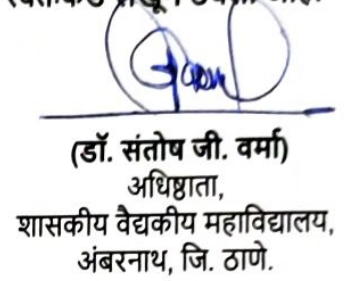 (डॉ. संतोष जी. वर्मा)
अधिष्ठाता,
शासकीय वैद्यकीय महाविद्यालय,
अंबरनाथ, जि. ठाणे.